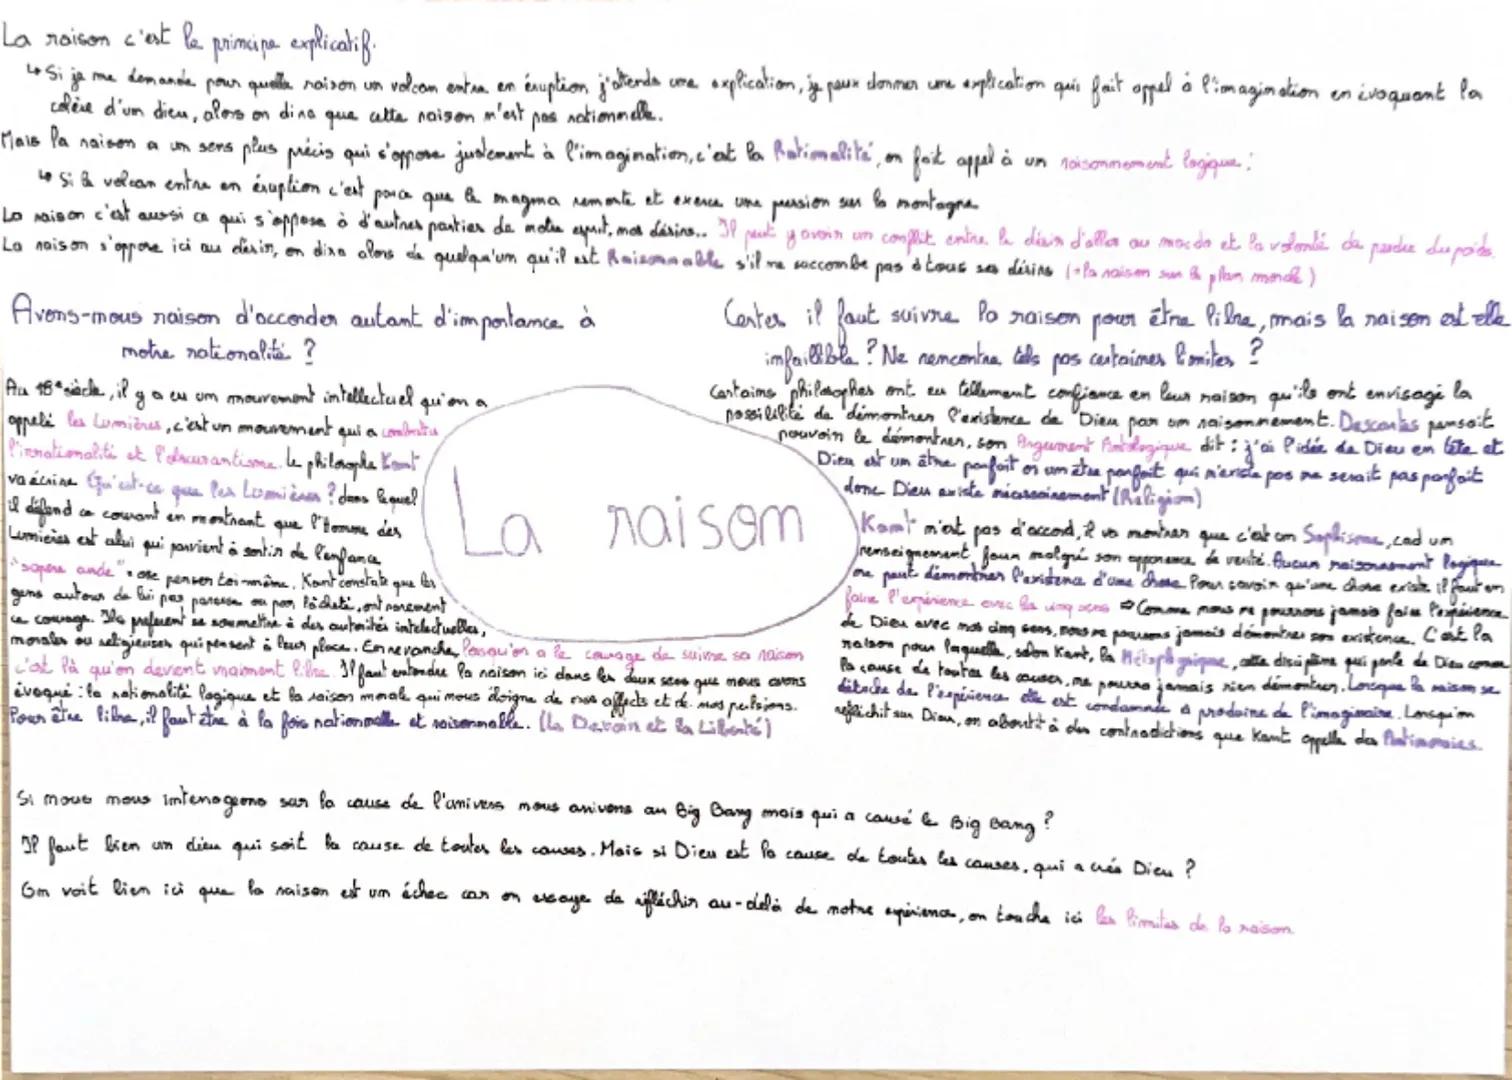 La raison c'est le principe explicatif.
↳ Si je me demande pour quelle raison un volcan entre en éruption j'attends une explication, je peux donner une explication qui fait appel à l'imagination en évoquant la
colère d'un dieu, alors on dira que cette raison n'est pas rationnelle.
Mais la raison a un sens plus précis qui s'oppose justement à l'imagination, c'est la Rationalité, on fait appel à un raisonnement logique :
↳ Si le volcan entre en éruption c'est parce que le magma remonte et exerce une pression sur la montagne.
La raison c'est aussi ce qui s'oppose à d'autres parties de notre esprit, nos désirs.. Il peut y avoir un conflit entre le désir d'aller au macdo et la volonté de perdre du poids.
La raison s'oppose ici au désir, on dira alors de quelqu'un qu'il est Raisonnable s'il ne succombe pas à tous ses désirs (→ la raison sur le plan morale)
Avons-nous raison d'accorder autant d'importance à
notre rationalité ?
Au 18e siècle, il y a eu un mouvement intellectuel qu'on a
appelé les Lumières, c'est un mouvement qui a combattu
l'irrationalité et l'obscurantisme. Le philosophe Kant
va écrire Qu'est-ce que les Lumières ? dans lequel
il défend ce courant en montrant que l'Homme des
Lumières est celui qui parvient à sortir de l'enfance
"sapere aude" = ose penser toi-même. Kant constate que les
gens autour de lui par paresse ou par lâcheté, ont rarement
ce courage. Ils préfèrent se soumettre à des autorités intelectuelles,
morales ou religieuses qui pensent à leur place. En revanche, lorsqu'on a le courage de suivre sa raison
c'est là qu'on devient vraiment libre. Il faut entendre la raison ici dans les deux sens que nous avons
évoqué : la rationalité logique et la raison morale qui nous éloigne de nos affects et de nos pulsions.
Pour être libre, il faut être à la fois rationnelle et raisonnable. (Le Devoir et la Liberté)
La raison
Certes il faut suivre la raison pour être libre, mais la raison est elle
infaillible ? Ne rencontre tels pas certaines limites ?
Certains philosophes ont eu tellement confiance en leur raison qu'ils ont envisagé la
possibilité de démontrer l'existence de Dieu par un raisonnement. Descartes pensait
pouvoir le démontrer, son Argument Ontologique dit : j'ai l'idée de Dieu en tête et
Dieu est un être parfait or un être parfait qui n'existe pas ne serait pas parfait
donc Dieu existe nécessairement (Religion)
Kant n'est pas d'accord, il va montrer que c'est un Sophisme, cad un
renseignement faux malgré son apparence de verité. Aucun raisonnement logique
ne peut démontrer l'existence d'une chose. Pour savoir qu'une chose existe il faut en
faire l'expérience avec les cinq sens ⇒ Comme nous ne pourrons jamais faire l'expérience
de Dieu avec nos cinq sens, nous ne pouvons jamais démontrer son existence. C'est la
raison pour laquelle, selon Kant, la Métaphysique, cette discipline qui parle de Dieu comme
la cause de toutes les causes, ne pourra jamais rien démontrer. Lorsque la raison se
détache de l'expérience elle est condamnée à produire de l'imaginaire. Lorsqu'on
réfléchit sur Dieu, on aboutit à des contradictions que Kant appelle des Antinomies.
Si nous nous interrogeons sur la cause de l'univers nous arivons au Big Bang mais qui a causé le Big Bang ?
Il faut bien un dieu qui soit la cause de toutes les causes. Mais si Dieu est la cause de toutes les causes, qui a créé Dieu ?
On voit bien ici que la raison est un échec car on essaye de réfléchir au-delà de notre expérience, on touche ici les limites de la raison